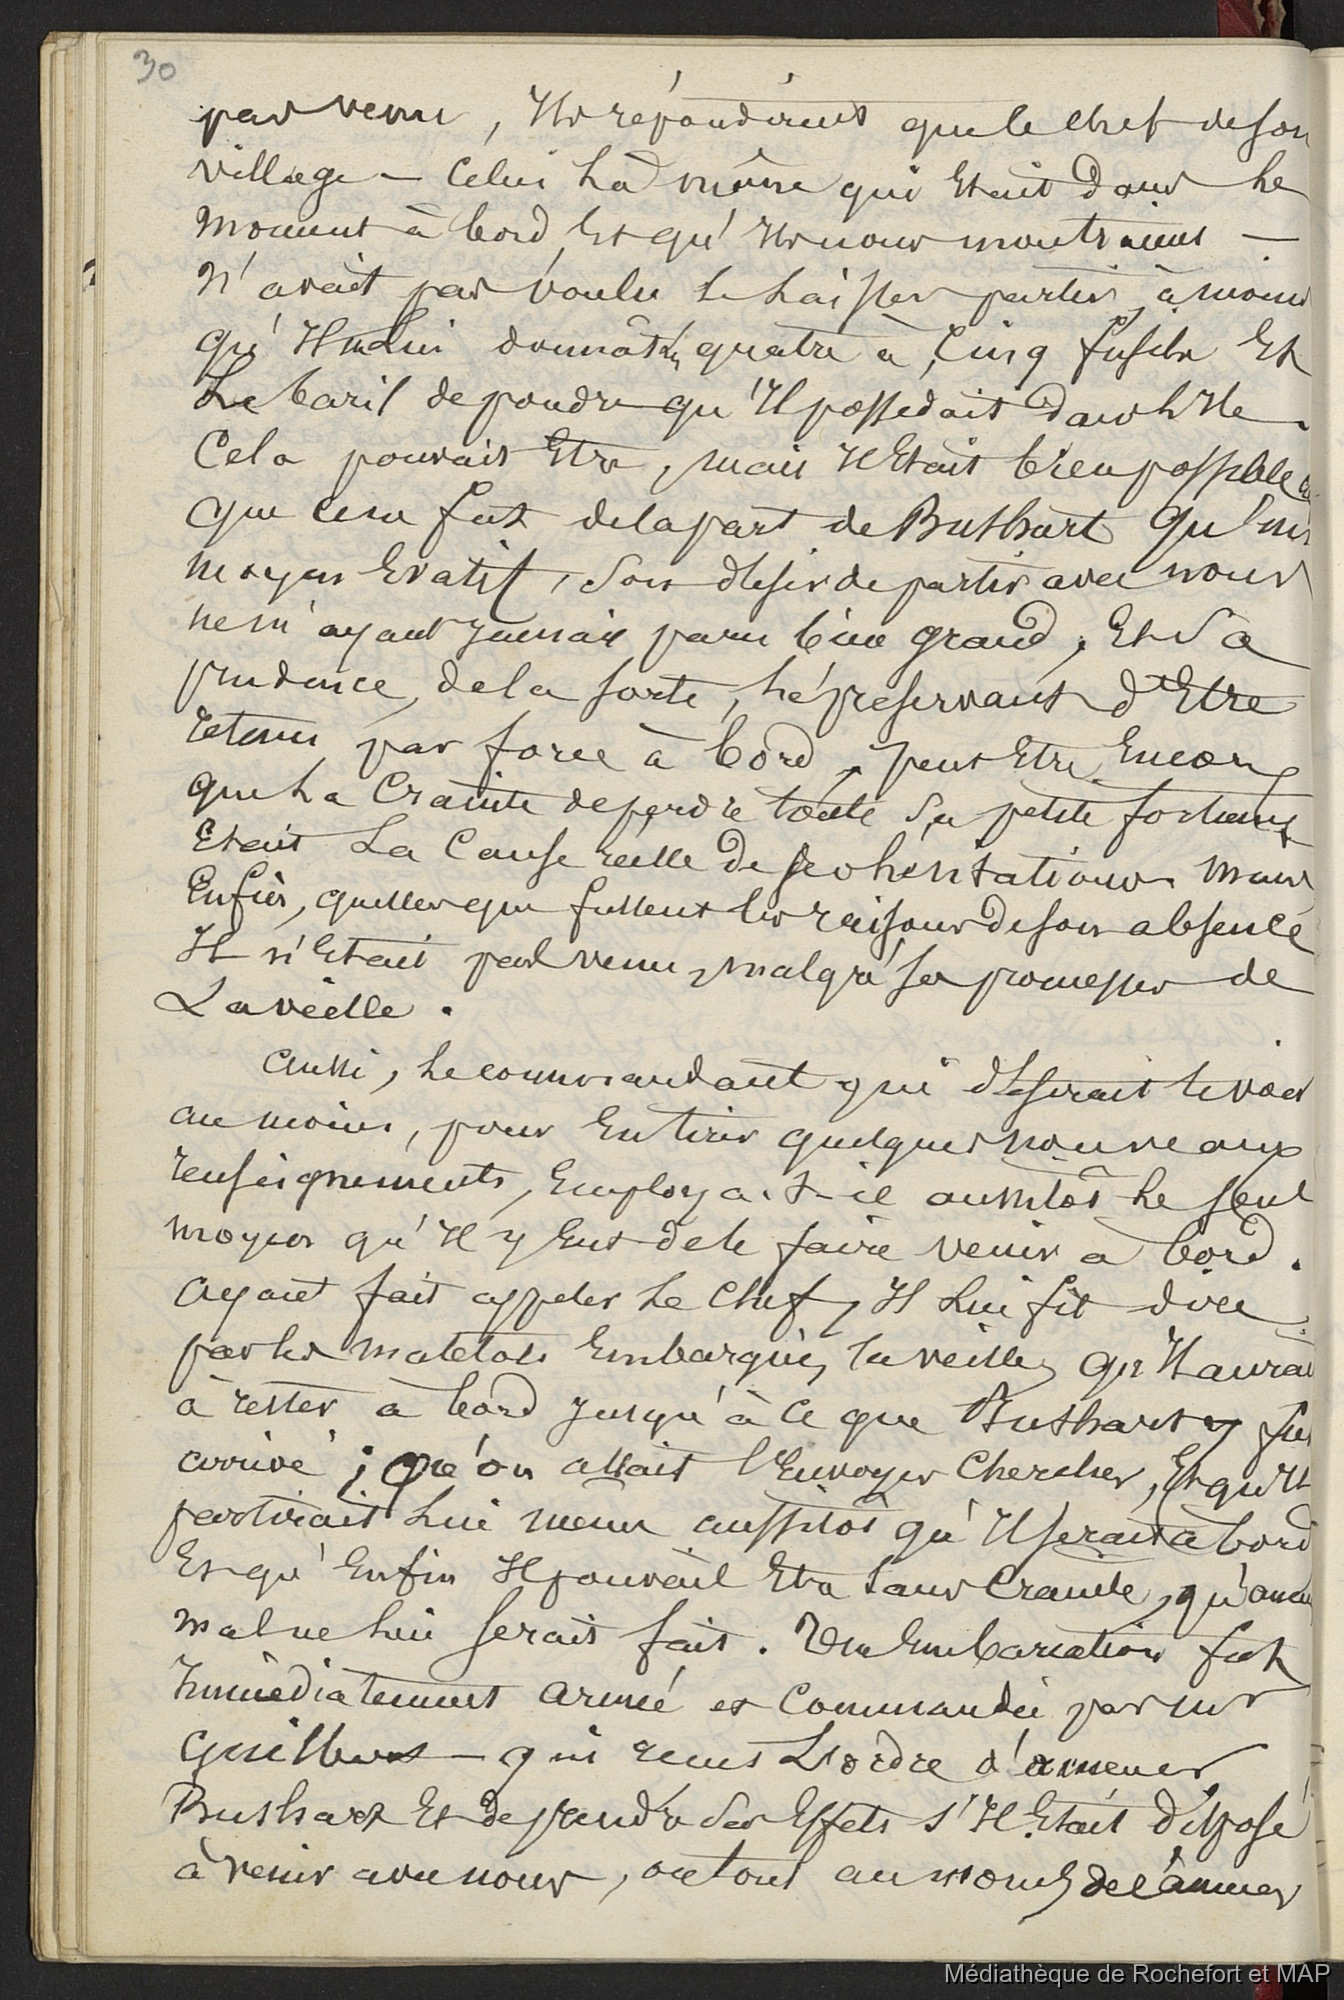 30
pas venu, Ils répondirent que le chef de son
village — Celui La même qui Etait dans le
moment à bord Et qu'Ils nous montraient —
N'avait pas voulu le Laisser partir à moins
qu'Il Lui donnât quatre à Cinq fusils Et
Le baril de poudre qu'Il possedait dans L'Ile.
Cela pouvait Etre, mais Il Etait bien possible
que ce ne fut de la part de Bushart qu'un
moyen Evatif, Son desir de partir avec nous
ne m'ayant Jamais paru bien grand, Et Sa
prudence, de la sorte, le préservant d'Etre
retenu par force à bord, peut Etre Encore
que La Crainte de perdre toute Sa petite fortune
Etait La Cause reelle de ses hesitations. Mais
Enfin, quelles que fussent les raisons de son absence
Il n'Etait pas venu, malgré ses promesses de
La veille.
Aussi, Le commandant qui desirait le voir
au moins, pour En tirer quelques nouveaux
renseignements, Employa-t-il aussitôt Le seul
moyen qu'Il y Eut de le faire venir à bord.
Ayant fait appeler Le Chef, Il Lui fit dire
par les matelots Embarqués la veille, qu'Il aurait
à rester à bord Jusqu'à ce que Bushart y fut
arrivé; qu'on allait l'Envoyer Chercher, Et qu'Il
partirait Lui même aussitôt qu'Il serait à bord
Et qu'Enfin Il pouvait Etre Sans Crainte, qu'aucun
mal ne Lui serait fait. Une Embarcation fut
Immédiatement armée et Commandée par mr
Guilbert — qui reçut L'ordre d'amener
Bushart Et de prendre Ses Effets s'Il Etait disposé
à venir avec nous, ou tout au moins de l'amener
Médiathèque de Rochefort et MAP